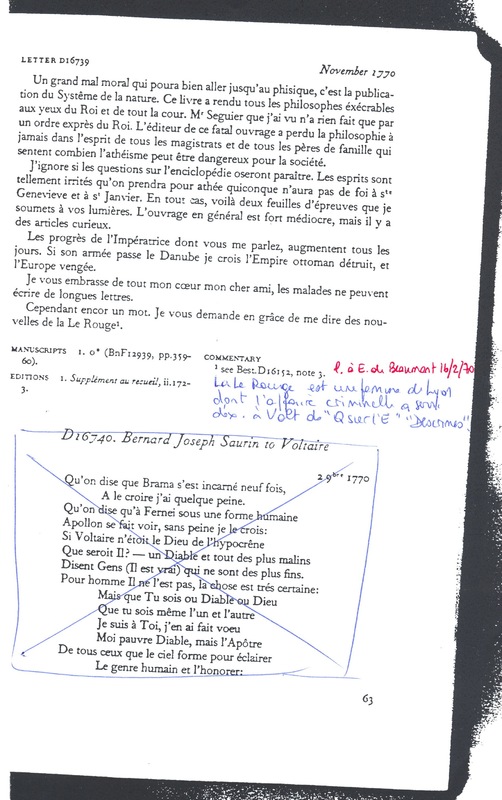 LETTER D16739
November 1770
Un grand mal moral qui poura bien aller jusqu'au phisique, c'est la publica-
tion du Système de la nature. Ce livre a rendu tous les philosophes éxécrables
aux yeux du Roi et de tout la cour. Mʳ Seguier que j'ai vu n'a rien fait que par
un ordre exprès du Roi. L'éditeur de ce fatal ouvrage a perdu la philosophie à
jamais dans l'esprit de tous les magistrats et de tous les pères de famille qui
sentent combien l'athéisme peut être dangereux pour la société.
J'ignore si les questions sur l'enciclopédie oseront paraître. Les esprits sont
tellement irrités qu'on prendra pour athée quiconque n'aura pas de foi à sᵗᵉ
Genevieve et à sᵗ Janvier. En tout cas, voilà deux feuilles d'épreuves que je
soumets à vos lumières. L'ouvrage en général est fort médiocre, mais il y a
des articles curieux.
Les progrès de l'Impératrice dont vous me parlez, augmentent tous les
jours. Si son armée passe le Danube je crois l'Empire ottoman détruit, et
l'Europe vengée.
Je vous embrasse de tout mon cœur mon cher ami, les malades ne peuvent
écrire de longues lettres.
Cependant encor un mot. Je vous demande en grâce de me dire des nou-
velles de la Le Rouge¹.
MANUSCRIPTS 1. o* (BnF12939, pp.359-
60).
EDITIONS 1. Supplément au recueil, ii.172-
3.
COMMENTARY
¹ see Best.D16152, note 3. l. à E. de Beaumont 16/2/70
La Le Rouge est une femme de Lyon
dont l'affaire criminelle a servi
à Volt de "Q sur l'E"
D16740. Bernard Joseph Saurin to Voltaire
2 9ᵇʳᵉ 1770
Qu'on dise que Brama s'est incarné neuf fois,
A le croire j'ai quelque peine.
Qu'on dise qu'à Fernei sous une forme humaine
Apollon se fait voir, sans peine je le crois:
Si Voltaire n'étoit le Dieu de l'hypocrêne
Que seroit Il? — un Diable et tout des plus malins
Disent Gens (Il est vrai) qui ne sont des plus fins.
Pour homme Il ne l'est pas, la chose est trés certaine:
Mais que Tu sois ou Diable ou Dieu
Que tu sois même l'un et l'autre
Je suis à Toi, j'en ai fait voeu
Moi pauvre Diable, mais l'Apôtre
De tous ceux que le ciel forme pour éclairer
Le genre humain et l'honorer:
63